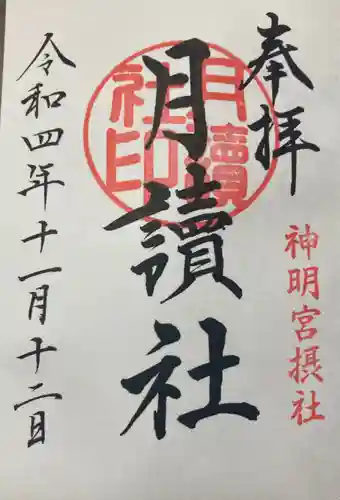 奉拝
神明宮摂社
月讀社
月讀社印
令和四年十一月十二日